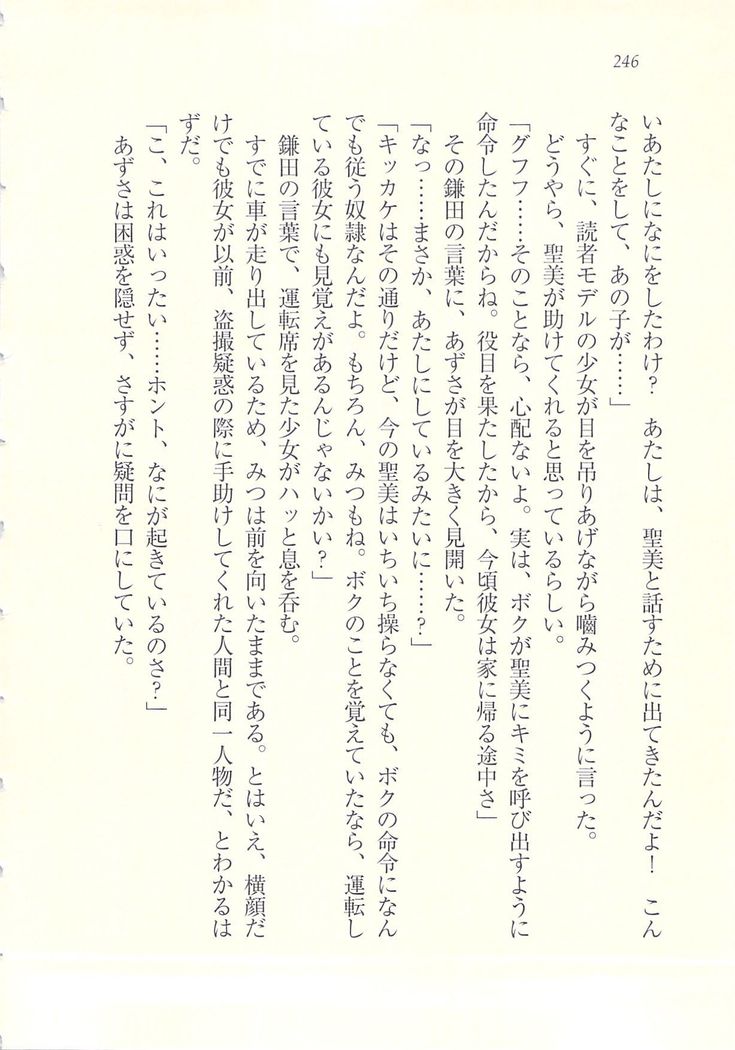 246
いあたしになにをしたわけ?　あたしは、聖美と話すために出てきたんだよ!　こん
なことをして、あの子が……」
すぐに、読者モデルの少女が目を吊りあげながら嚙みつくように言った。
どうやら、聖美が助けてくれると思っているらしい。
「グフフ……そのことなら、心配ないよ。実は、ボクが聖美にキミを呼び出すように
命令したんだからね。役目を果たしたから、今頃彼女は家に帰る途中さ」
その鎌田の言葉に、あずさが目を大きく見開いた。
「なっ……まさか、あたしにしているみたいに……?」
「キッカケはその通りだけど、今の聖美はいちいち操らなくても、ボクの命令になん
でも従う奴隷なんだよ。もちろん、みつもね。ボクのことを覚えていたなら、運転し
ている彼女にも見覚えがあるんじゃないかい?」
鎌田の言葉で、運転席を見た少女がハッと息を呑む。
すでに車が走り出しているため、みつは前を向いたままである。とはいえ、横顔だ
けでも彼女が以前、盗撮疑惑の際に手助けしてくれた人間と同一人物だ、とわかるは
ずだ。
「こ、これはいったい……ホント、なにが起きているのさ?」
あずさは困惑を隠せず、さすがに疑問を口にしていた。